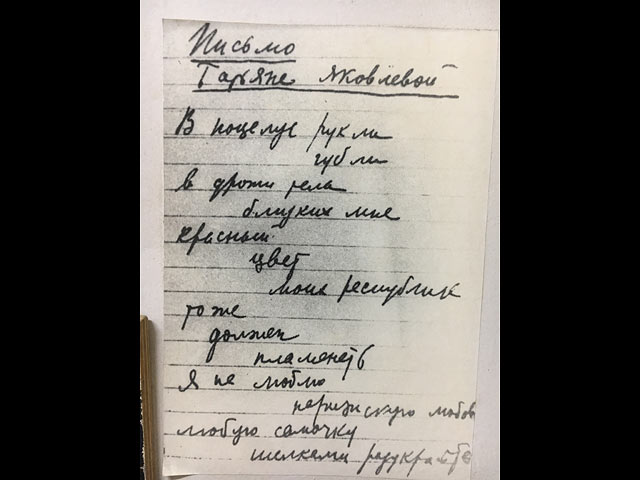 Письмо
Татьяне Яковлевой
В поцелуе рук ли
губ ли
в дрожи тела
близких мне
красный
цвет
моих республик
тоже
должен
пламенеть
Я не люблю
парижскую любовь
любую самочку
шелками разукрасьте